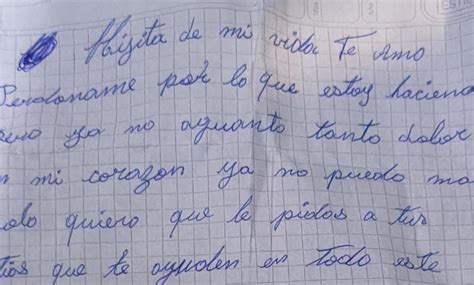 Hijita de mi vida Te amo
Perdoname por lo que estoy haciend
ya no aguanto tanto dolor
mi corazon ya no puedo ma
olo quiero que le pidas a tus
tios que te ayuden en todo este